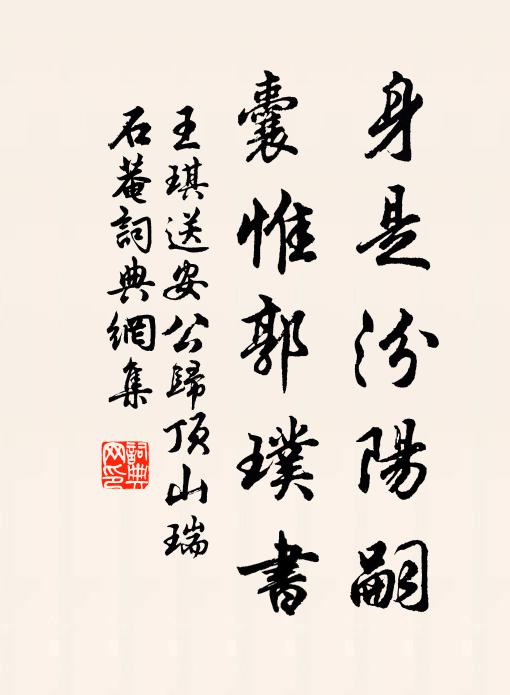 身是汾陽嗣
囊惟郭璞書
王琪送安公歸頂山瑞
石菴詞典網集
詞典網印